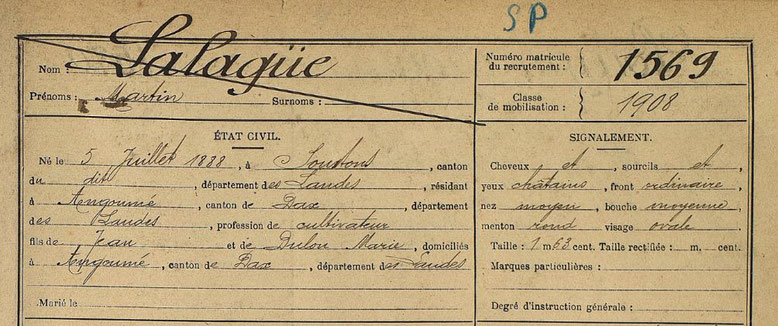 SP
Nom : Lalagüe
Prénoms : Martin Surnoms :
Numéro matricule du recrutement : 1569
Classe de mobilisation : 1908
ÉTAT CIVIL.
Né le 5 Juillet 1888, à Soustons, canton
du dit, département des Landes, résidant
à Angoumé, canton de Dax, département
des Landes, profession de cultivateur
fils de Jean et de Dulou Marie, domiciliés
à Angoumé, canton de Dax, département des Landes
Marié le
SIGNALEMENT.
Cheveux et, sourcils et,
yeux châtains, front ordinaire,
nez moyen, bouche moyenne
menton rond visage ovale.
Taille : 1 m 63 cent. Taille rectifiée : m, cent.
Marques particulières :
Degré d'instruction générale :